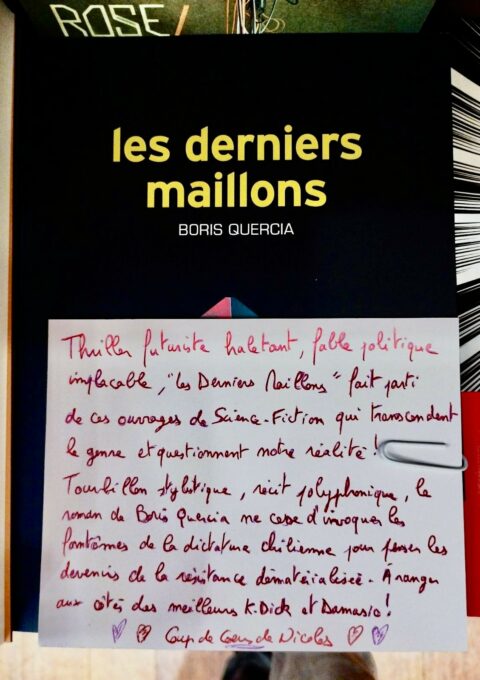 ROSE/
les derniers
maillons
BORIS QUERCIA
Thriller futuriste haletant, fable politique
implacable, "les Derniers Maillons" fait parti
de ces ouvrages de Science-Fiction qui transcendent
le genre et questionnent notre réalité !
Tourbillon stylistique, récit polyphonique, le
roman de Boris Quercia ne cesse d'invoquer les
fantômes de la dictature chilienne pour penser les
devenirs de la résistance dématérialisée. À ranger
aux côtés des meilleurs K.Dick et Damasio !
Coup de Coeur de Nicolas